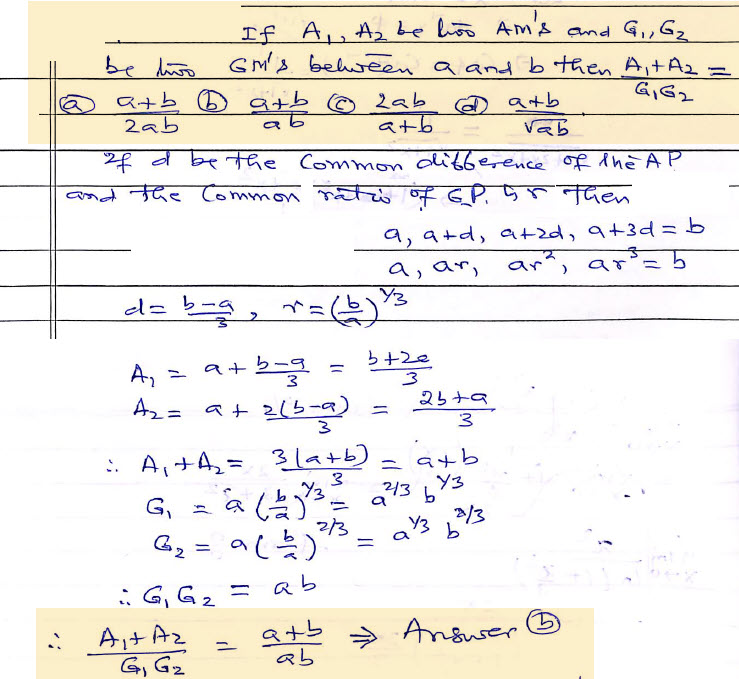 If A₁, A₂ be two AM's and G₁, G₂
be two GM's between a and b then (A₁+A₂)/(G₁G₂) =
ⓐ (a+b)/(2ab) ⓑ (a+b)/(ab) ⓒ (2ab)/(a+b) ⓓ (a+b)/(√ab).
If d be the common difference of the AP
and the common ratio of G.P. is r then
a, a+d, a+2d, a+3d = b
a, ar, ar², ar³ = b
d = (b-a)/3, r = (b/a)^(1/3)
A₁ = a + (b-a)/3 = (b+2a)/3
A₂ = a + 2(b-a)/3 = (2b+a)/3
∴ A₁+A₂ = 3(a+b)/3 = a+b
G₁ = a (b/a)^(1/3) = a^(2/3) b^(1/3)
G₂ = a (b/a)^(2/3) = a^(1/3) b^(2/3)
∴ G₁G₂ = ab
∴ (A₁+A₂)/(G₁G₂) = (a+b)/(ab) ⇒ Answer ⓑ